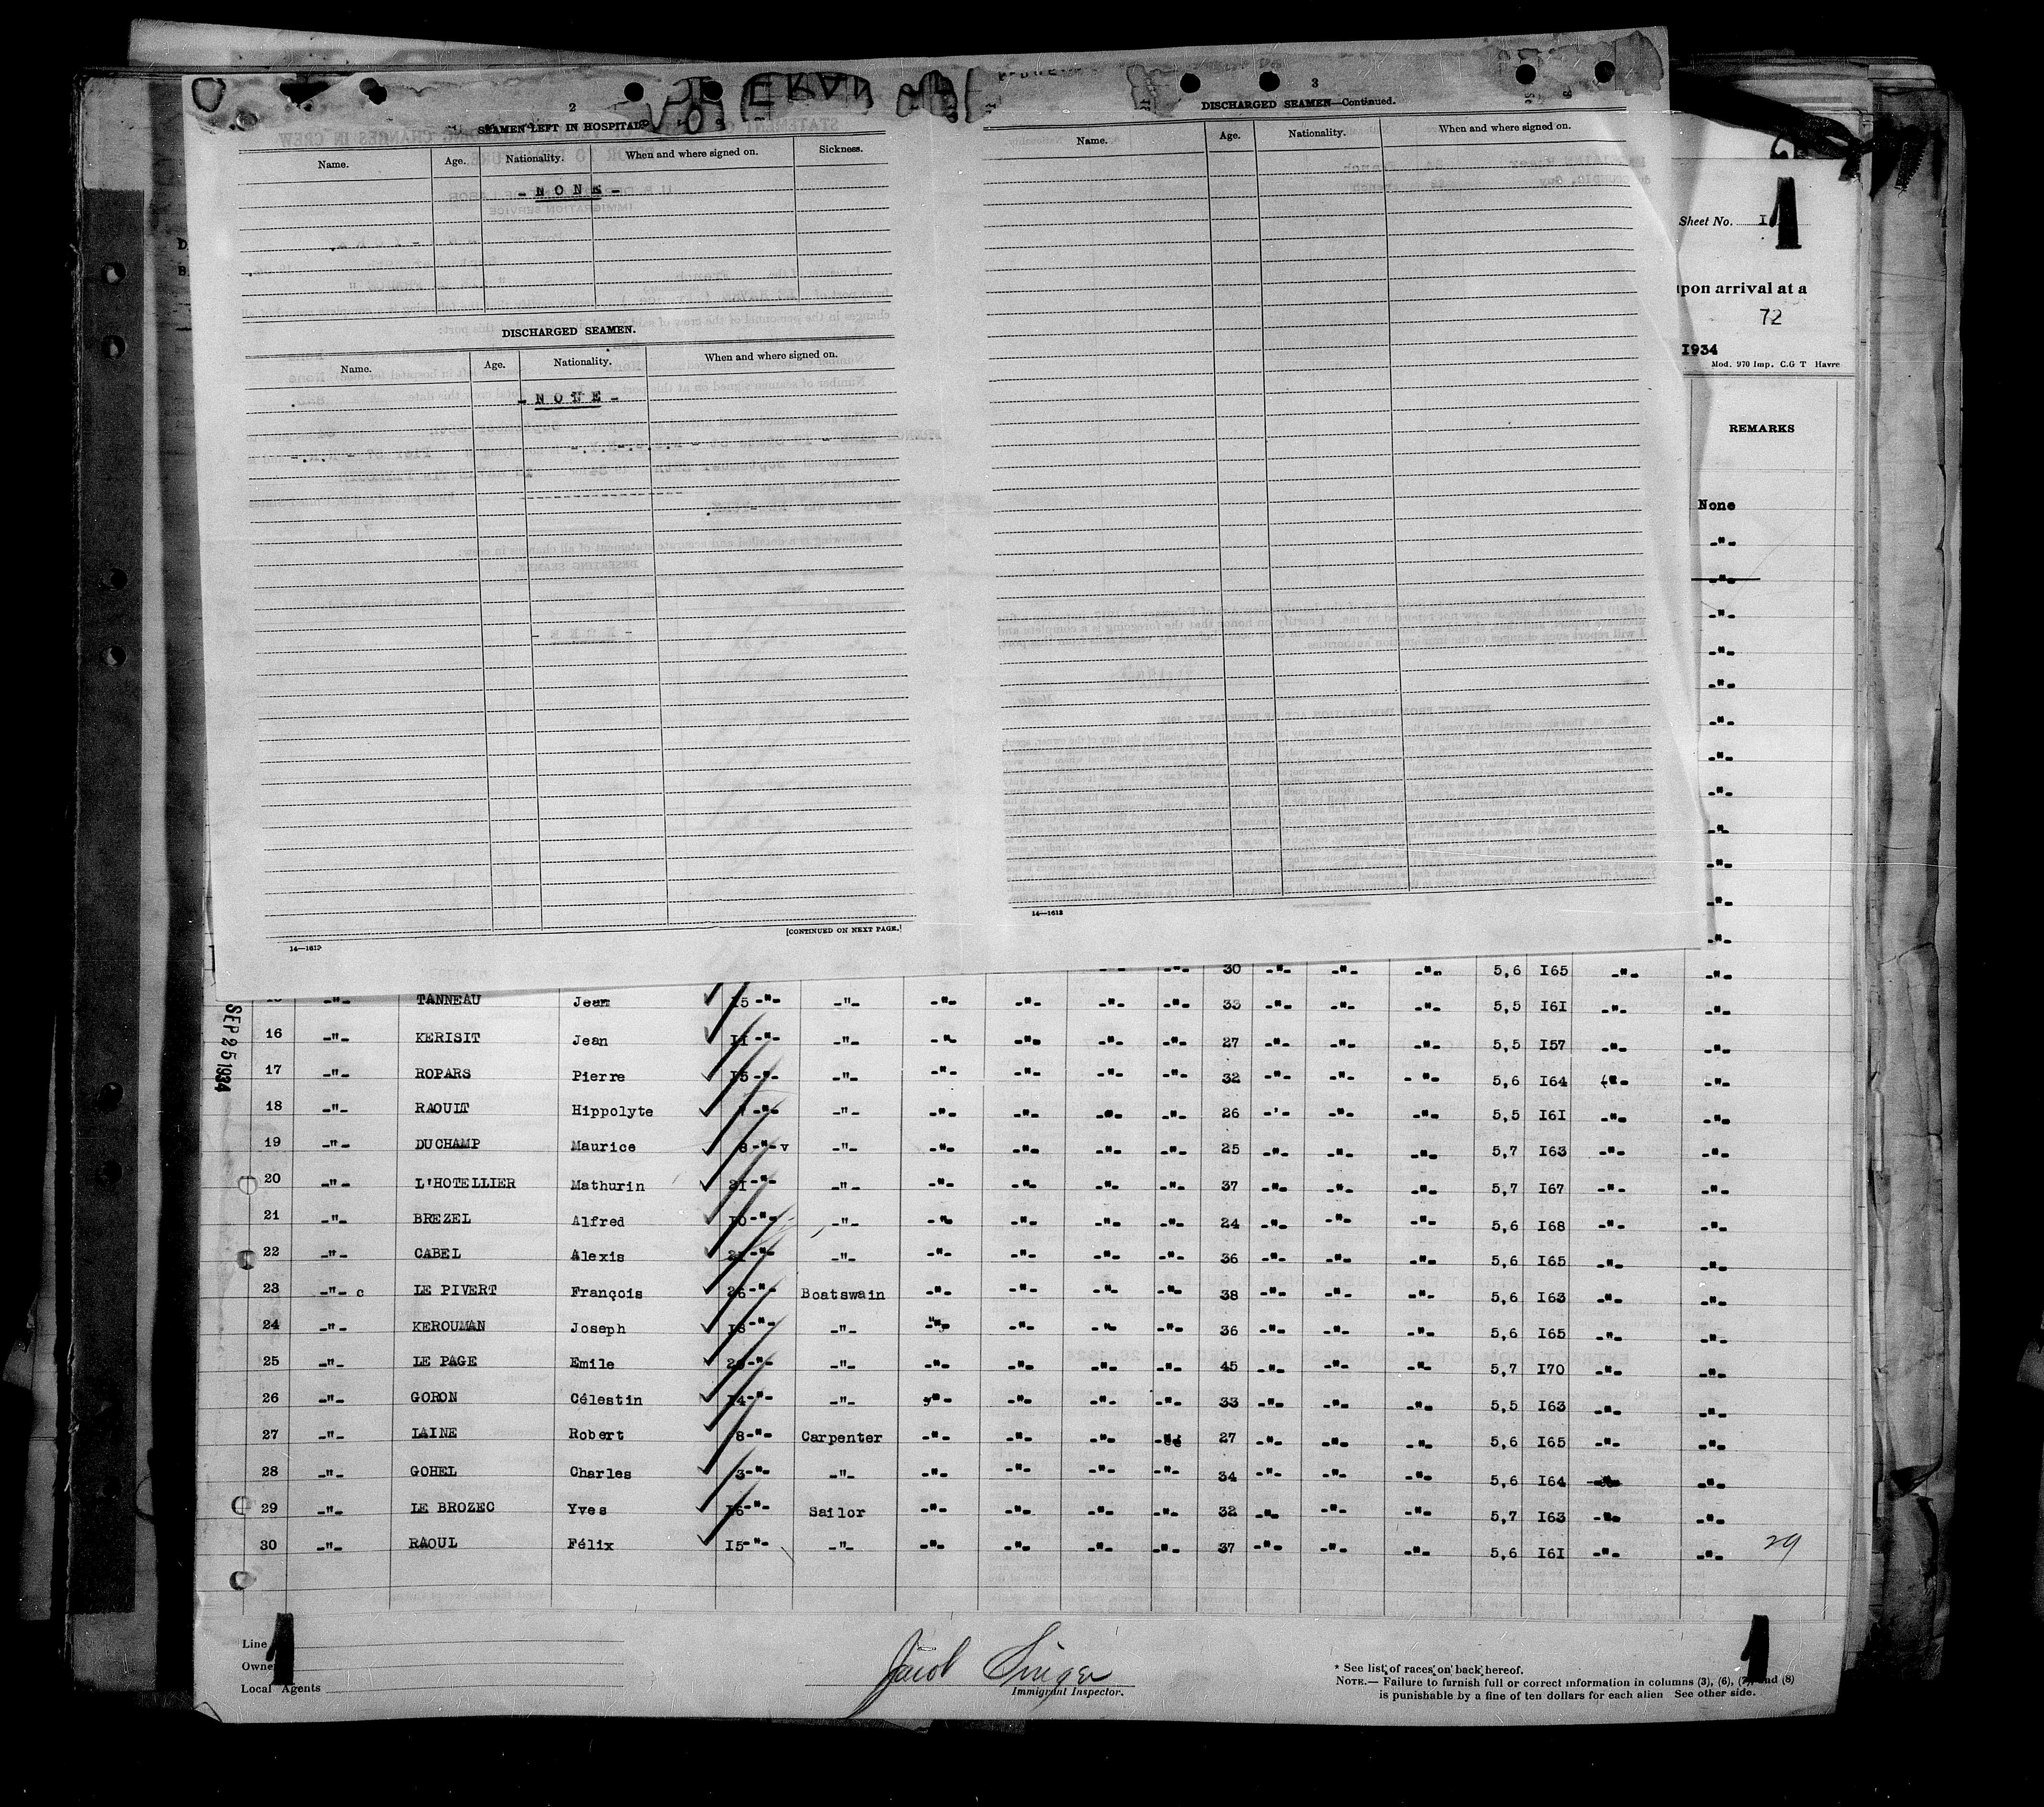 2
SEAMEN LEFT IN HOSPITAL
Name. Age. Nationality. When and where signed on. Sickness.
- N O N E -
DISCHARGED SEAMEN.
Name. Age. Nationality. When and where signed on.
- N O N E -
14—1613
[CONTINUED ON NEXT PAGE.]
3
DISCHARGED SEAMEN—Continued.
Name. Age. Nationality. When and where signed on.
14—1613
Sheet No. I
1
upon arrival at a
72
1934
Mod. 970 Imp. C.G T Havre
REMARKS
None
-"-
-"-
-"-
-"-
-"-
-"-
-"-
-"-
-"-
-"-
-"-
-"-
SEP 25 1934
30 -"- -"- -"- 5,6 I65 -"- -"-
-"- TANNEAU Jean I5 -"- -"- -"- -"- -"- -"- 33 -"- -"- -"- 5,5 I6I -"- -"-
16 -"- KERISIT Jean II -"- -"- -"- -"- -"- -"- 27 -"- -"- -"- 5,5 I57 -"- -"-
17 -"- ROPARS Pierre I5 -"- -"- -"- -"- -"- -"- 32 -"- -"- -"- 5,6 I64 -"- -"-
18 -"- RAOUIT Hippolyte -"- -"- -"- -"- -"- -"- 26 -"- -"- -"- 5,5 I6I -"- -"-
19 -"- DUCHAMP Maurice 8 -"- v -"- -"- -"- -"- -"- 25 -"- -"- -"- 5,7 I63 -"- -"-
20 -"- L'HOTELLIER Mathurin 2I -"- -"- -"- -"- -"- -"- 37 -"- -"- -"- 5,7 I67 -"- -"-
21 -"- BREZEL Alfred I0 -"- -"- -"- -"- -"- -"- 24 -"- -"- -"- 5,6 I68 -"- -"-
22 -"- CABEL Alexis 2I -"- -"- -"- -"- -"- -"- 36 -"- -"- -"- 5,6 I65 -"- -"-
23 -"- c LE PIVERT François 26 -"- Boatswain -"- -"- -"- -"- 38 -"- -"- -"- 5,6 I63 -"- -"-
24 -"- KEROUMAN Joseph I8 -"- -"- -"- -"- -"- -"- 36 -"- -"- -"- 5,6 I65 -"- -"-
25 -"- LE PAGE Emile 20 -"- -"- -"- -"- -"- -"- 45 -"- -"- -"- 5,7 I70 -"- -"-
26 -"- GORON Célestin I4 -"- -"- -"- -"- -"- -"- 33 -"- -"- -"- 5,5 I63 -"- -"-
27 -"- LAINE Robert 8 -"- Carpenter -"- -"- -"- -"- 27 -"- -"- -"- 5,6 I65 -"- -"-
28 -"- GOHEL Charles 3 -"- -"- -"- -"- -"- -"- 34 -"- -"- -"- 5,6 I64 -"- -"-
29 -"- LE BROZEC Yves I6 -"- Sailor -"- -"- -"- -"- 32 -"- -"- -"- 5,7 I63 -"- -"-
30 -"- RAOUL Félix I5 -"- -"- -"- -"- -"- -"- 37 -"- -"- -"- 5,6 I6I -"- -"- 29
Line
Owne
Local Agents
1
Jacob Singer
Immigrant Inspector.
* See list of races on back hereof.
NOTE.— Failure to furnish full or correct information in columns (3), (6), (7), and (8)
is punishable by a fine of ten dollars for each alien See other side.
1